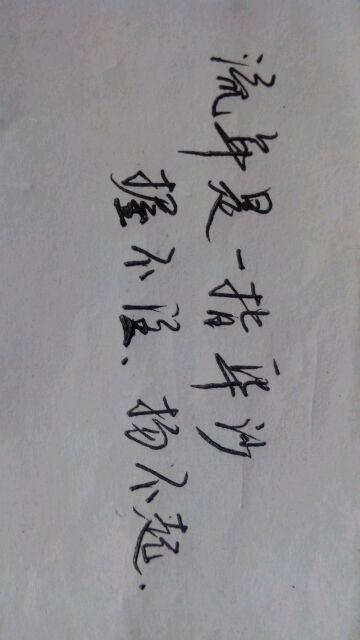 流年是一指华沙
握不住、扬不起.